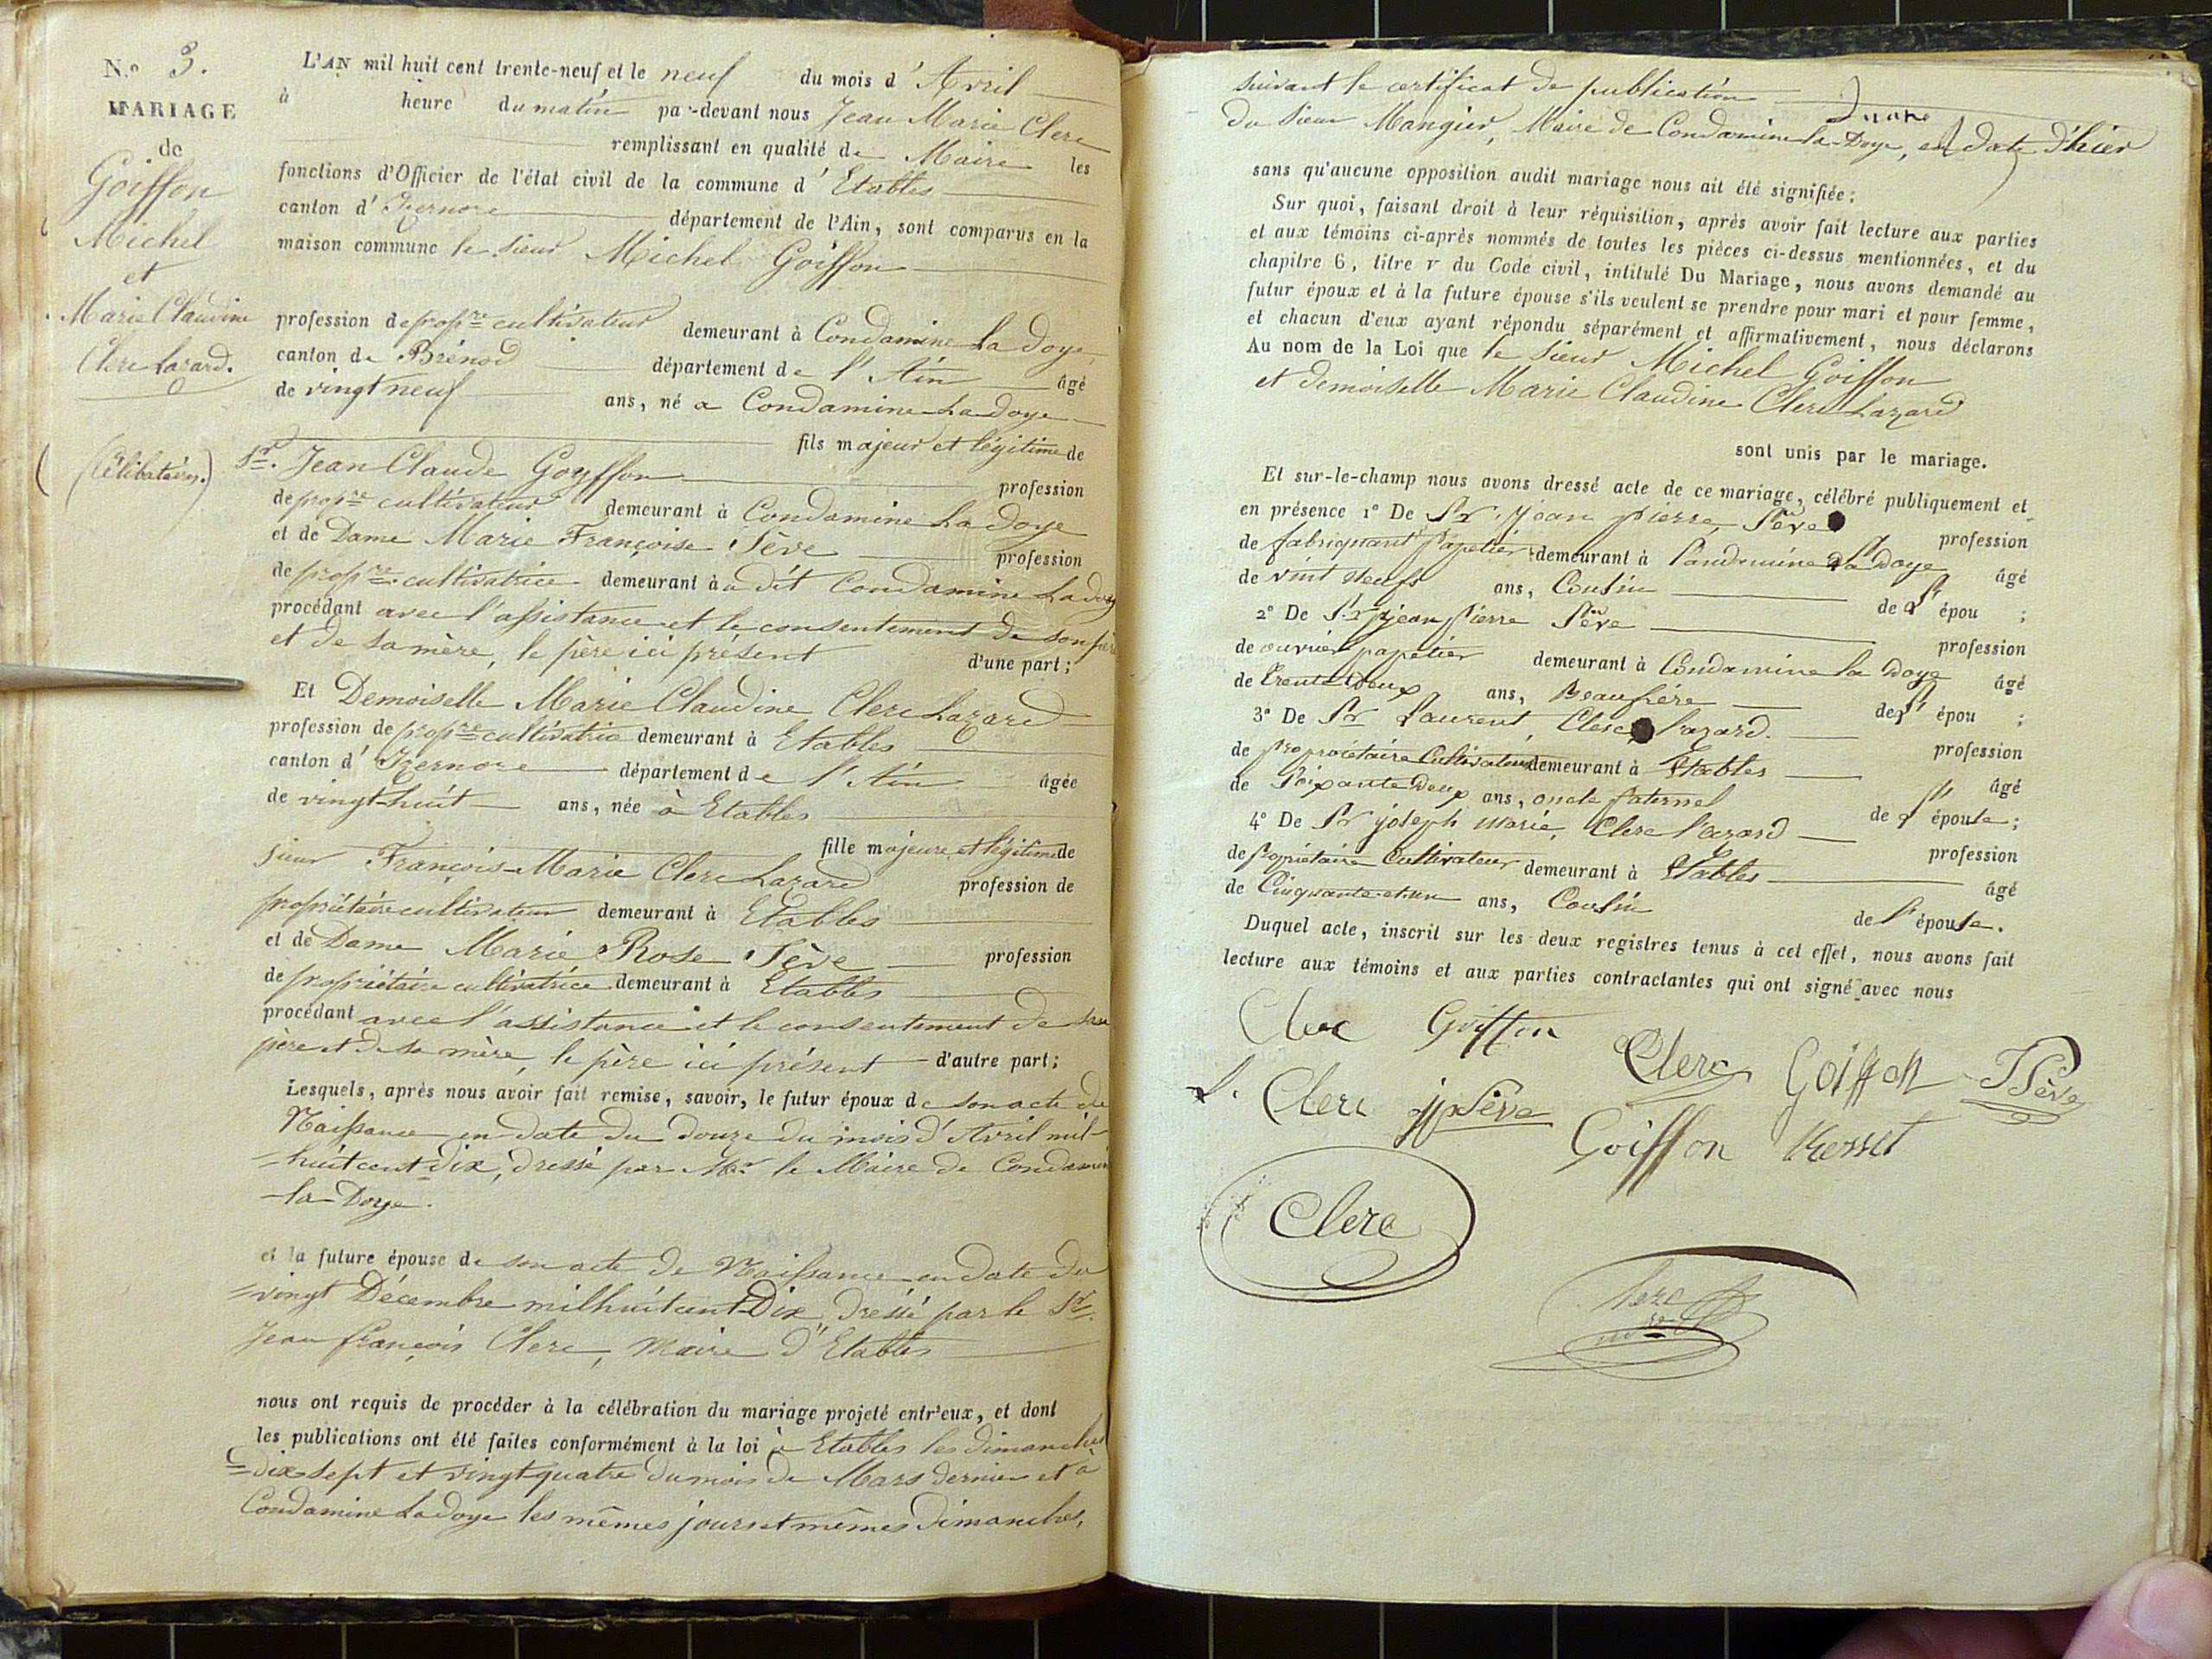 N.° 3.
MARIAGE
de
Goiffon
Michel
et
Marie Claudine
Clerc Lazard.
(Célibataires.)
L'AN mil huit cent trente-neuf et le neuf du mois d'Avril
à heure du matin par-devant nous Jean Marie Clerc
remplissant en qualité de Maire les
fonctions d'Officier de l'état civil de la commune d'Etables
canton d'Izernore département de l'Ain, sont comparus en la
maison commune le sieur Michel Goiffon
profession de propre cultivateur demeurant à Condamine La Doye
canton de Brénod département de l'Ain âgé
de vingt neuf ans, né à Condamine La Doye
fils majeur et légitime de
Sr. Jean Claude Goyffon profession
de propre cultivateur demeurant à Condamine La Doye
et de Dame Marie Françoise Sève profession
de propre cultivatrice demeurant à u dit Condamine La doy
procédant avec l'assistance et le consentement de son père
et de sa mère, le père ici présent d'une part;
Et Demoiselle Marie Claudine Clerc Lazard
profession de propre cultivatrice demeurant à Etables
canton d'Izernore département de l'Ain âgée
de vingt-huit ans, née à Etables
fille majeure et légitime de
sieur François-Marie Clerc Lazard profession de
propriétaire cultivateur demeurant à Etables
et de Dame Marie Rose Sève profession
de propriétaire cultivatrice demeurant à Etables
procédant avec l'assistance et le consentement de son
père et de sa mère, le père ici présent d'autre part;
Lesquels, après nous avoir fait remise, savoir, le futur époux de son acte de
Naissance en date du douze du mois d'Avril mil-
=huit cent dix, dressé par Mr. le Maire de Condamin
-la-Doye.
et la future épouse de son acte de Naissance en date du
=vingt Décembre mil huit cent Dix, dressé par le Sr.
Jean françois Clerc, Maire d'Etables
nous ont requis de procéder à la célébration du mariage projeté entr'eux, et dont
les publications ont été faites conformément à la loi à Etables les dimanches
=dix sept et vingt quatre du mois de Mars dernier et à
Condamine La doye les mêmes jours et mêmes dimanches,
suivant le certificat de publication
du Sieur Mangier, Maire de Condamine-la-Doye, en date d'hier
sans qu'aucune opposition audit mariage nous ait été signifiée;
Sur quoi, faisant droit à leur réquisition, après avoir fait lecture aux parties
et aux témoins ci-après nommés de toutes les pièces ci-dessus mentionnées, et du
chapitre 6, titre v du Code civil, intitulé Du Mariage, nous avons demandé au
futur époux et à la future épouse s'ils veulent se prendre pour mari et pour femme,
et chacun d'eux ayant répondu séparément et affirmativement, nous déclarons
Au nom de la Loi que le sieur Michel Goiffon
et demoiselle Marie Claudine Clerc Lazard
sont unis par le mariage.
Et sur-le-champ nous avons dressé acte de ce mariage, célébré publiquement et
en présence 1° De Sr. jean pierre Sève profession
de fabriquant papetier demeurant à Condamine La Doye âgé
de vint neufs ans, Cousin de l'épou ;
2° De Sr jean pierre Sêve profession
de ouvrier papetier demeurant à Condamine la Doye âgé
de trente Deux ans, Beaufrére de l'épou ;
3° De Sr Laurent, Clerc Lazard. profession
de propriétaire Cultivateur demeurant à Etables âgé
de Soixante Deux ans, oncle paternel de l'épouse;
4° De Sr joseph marie, Clerc Lazard profession
de propriétaire Cultivateur demeurant à Etables âgé
de Cinquante et un ans, Cousin de l'épouse.
Duquel acte, inscrit sur les deux registres tenus à cet effet, nous avons fait
lecture aux témoins et aux parties contractantes qui ont signé avec nous
Clerc Goiffon Clerc Goiffon Sève
L. Clerc jpSève Goiffon
Clerc
Clerc